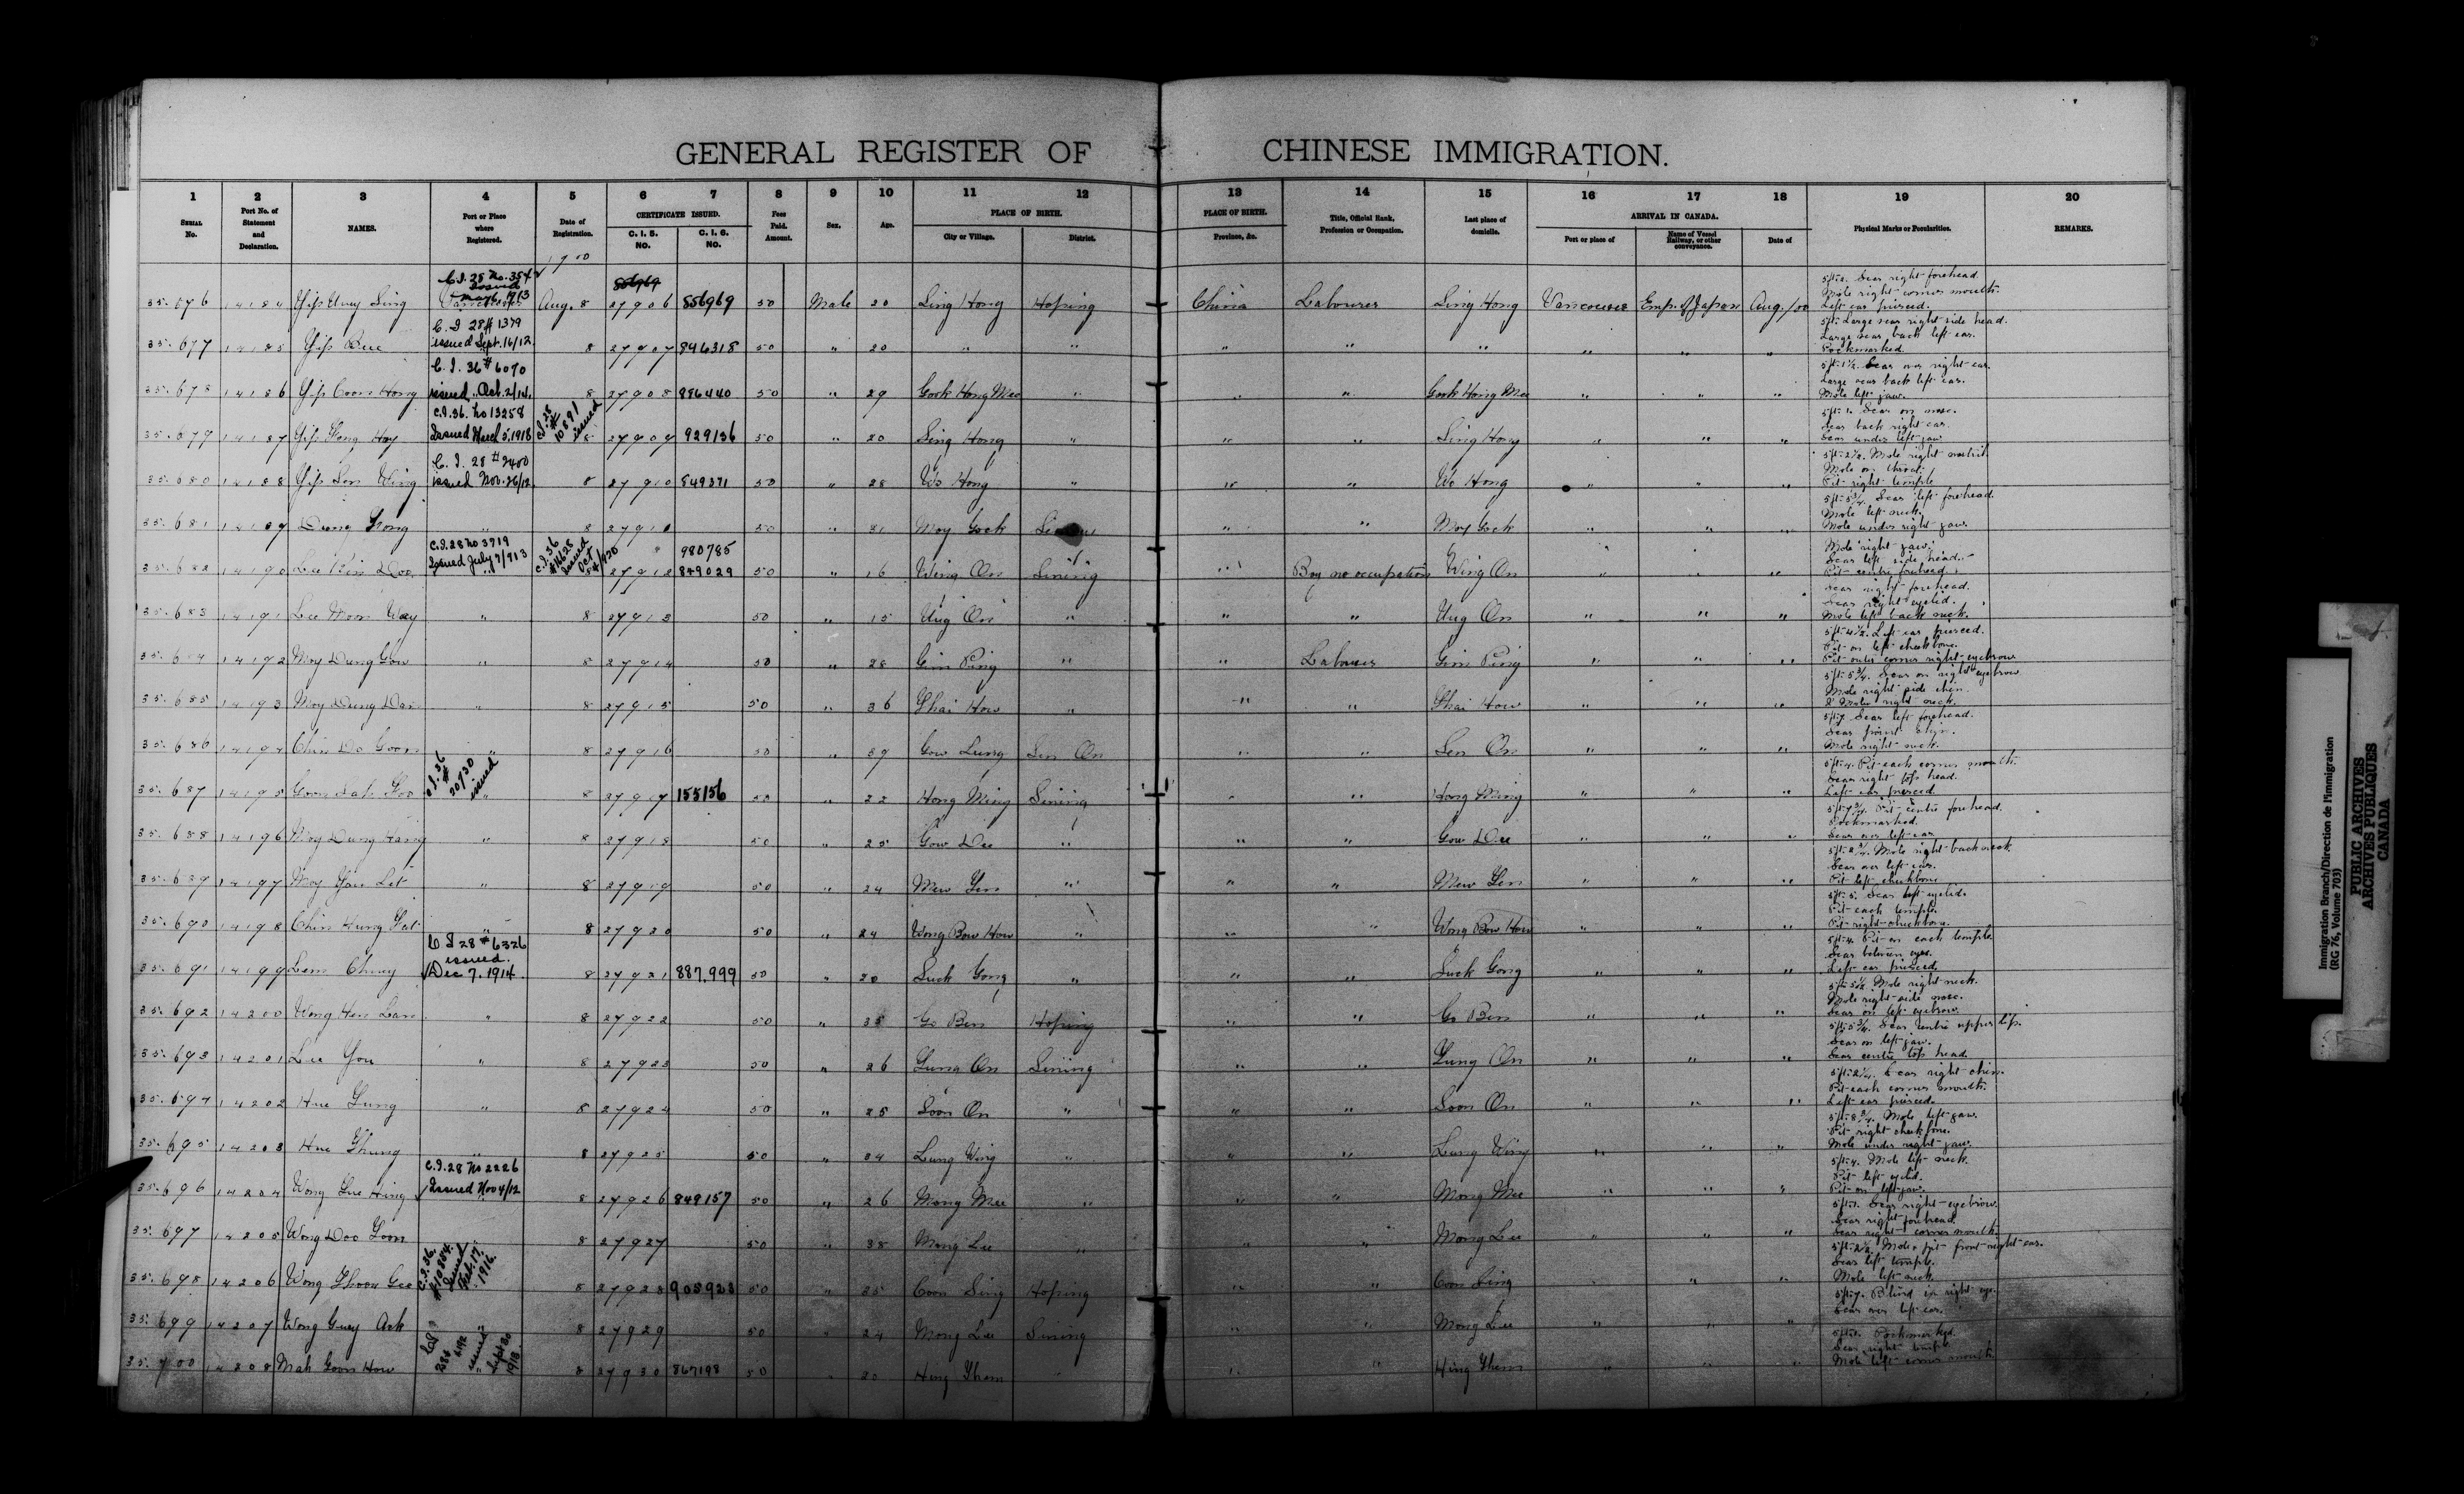 GENERAL REGISTER OF CHINESE IMMIGRATION.
1 2 3 4 5 6 7 8 9 10 11 12 13 14 15 16 17 18 19 20
SERIAL No. Port No. of Statement and Declaration. NAMES. Port or Place where Registered. Date of Registration. CERTIFICATE ISSUED. C. I. 5. NO. C. I. 6. NO. Fees Paid. Amount. Sex. Age. PLACE OF BIRTH. City or Village. District. PLACE OF BIRTH. Province, &c. Title, Official Rank, Profession or Occupation. Last place of domicile. ARRIVAL IN CANADA. Port or place of Name of Vessel Railway, or other conveyance. Date of Physical Marks or Peculiarities. REMARKS.
1900
35.676 14184 Yip Uney Sing C.I. 28 No. 354 Issued May 6, 1913 Vancouver Aug. 8 27906 856969 50 Male 20 Sing Hong Hoping China Labourer Sing Hong Vancouver Emp. of Japan Aug. /00 Scar right forehead. Mole right corner mouth. Left ear pierced.
35.677 14185 Yip Bue C.I 28 # 1379 issued Sept. 16/12 8 27907 846318 50 " 20 " " " " " " " " Large scar right side head. Large scar back left ear. Pockmarked.
35.678 14186 Yip Coon Hong C.I. 36 # 6070 issued Oct. 2/14. 8 27908 886440 50 " 29 Gook Hong Mee " " " Gook Hong Mee " " " 5ft-1½. Scar over right ear. Large scar back left ear. Mole left jaw.
35.679 14187 Yip Hong Hoy C.I. 36. No 13258 Issued March 5, 1918 C.I. 28 # 10891 issued 8 27909 929136 50 " 20 Sing Hong " " " Sing Hong " " " 5ft-1. Scar on nose. Scar back right ear. Scar under left jaw
35.680 14188 Yip Sen Wing C.I. 28 # 2400 issued Nov. 26/12. 8 27910 849371 50 " 28 Wo Hong " " " Wo Hong " " " 5ft-2½. Mole right nostril. Mole on throat. Pit right temple
35.681 14189 Dung Hong " 8 27911 50 " 21 Moy Gock " " Moy Gock " " " Scar left forehead. Mole left neck. Mole under right jaw.
35.682 14190 Lee C.I. 28 No 3719 Issued July 7/913 C.I. 36 issued Oct 27912 980785 849029 50 " 16 Wing On Sining " Boy no occupation Wing On " " " Mole right jaw. Scar left side head. Pit centre forehead.
35.683 14191 Lee Moon Way " 8 27913 50 " 15 Ung On " " " Ung On " " " Scar right forehead. Scar right eyelid. Mole left back neck.
35.684 14192 Moy Dung Gow " 8 27914 50 " 28 Gim Ping " " Labourer Gim Ping " " " 5ft-4½. Left ear pierced. Pit on left cheekbone. Pit outer corner right eyebrow
35.685 14193 Moy Dung Dan " 8 27915 50 " 36 Shai How " " " Shai How " " " 5ft-5¾. Scar on right eyebrow Mole right side chin. 2 Moles right neck.
35.686 14194 Chin Do Goon " 8 27916 50 " 39 Gow Lung Sen On " " Sen On " " " 5ft-7 Scar left forehead. Scar point chin. Mole right neck.
35.687 14195 Goon C.I. 36 # 20730 issued 8 27917 155156 50 " 22 Hong Ming Sining " " Hong Ming " " " 5ft-4. Pit each corner mouth. Scar right top head. Left ear pierced
35.688 14196 Moy Dung Hang " 8 27918 50 " 25 Gow Dee " " " Gow Dee " " " Pit centre forehead. Pockmarked. Scar over left ear
35.689 14197 Moy Yau Let " 8 27919 50 " 24 Mew Yen " " " Mew Yen " " " Mole right back neck. Scar over left ear. Pit left cheekbone
35.690 14198 Chin Hung Fat " 8 27920 50 " 24 Wong Bow How " " " Wong Bow How " " " 5ft-5. Scar left eyelid. Pit each temple. Pit right cheekbone.
35.691 14199 Lem Chuey C.I 28 # 6326 issued. Dec 7. 1914. 8 27921 887.999 50 " 20 Suck Gong " " " Suck Gong " " " 5ft-4. Pit on each temple. Scar between eyes. Left ear pierced.
35.692 14200 Wong Hen Lan " 8 27922 50 " 35 Go Ben Hoping " " Go Ben " " " 5ft-5½. Mole right neck. Mole right side nose. Scar on left eyebrow
35.693 14201 Lee You " 8 27923 50 " 26 Lung On Sining " " Lung On " " " 5ft-5¾. Scar centre upper lip. Scar on left jaw. Scar centre top head.
35.694 14202 Hue Lung " 8 27924 50 " 25 Soon On " " " Soon On " " " 5ft-2¼. Scar right chin. Pit each corner mouth. Left ear pierced.
35.695 14203 Hue Ghung " 8 27925 50 " 34 Lung Wing " " " Lung Wing " " " Mole left jaw. Pit right cheekbone. Mole under right jaw.
35.696 14204 Wong Lue Hing C.I. 28 No 2226 Issued Nov 4/12 8 27926 849157 50 " 26 Mong Mee " " " Mong Mee " " " 5ft-4. Mole left neck. Pit left eyelid. Pit on left jaw.
35.697 14205 Wong Doo Yoon 8 27927 50 " 38 Mong Lee " " " Mong Lee " " " Scar right eyebrow. Scar right forehead. Scar right corner mouth.
35.698 14206 Wong Ghoon Gee C.I. 36. #10804. Issued Feb. 17. 1916. 8 27928 905923 50 " 35 Coon Sing Hoping " " Coon Sing " " " 5ft-2½. Mole & pit front right ear. Scar left temple. Mole left neck.
35.699 14207 Wong Guey Ark " 8 27929 50 " 24 Mong Lee Sining " " Mong Lee " " " 5ft-7. Blind in right eye. Scar over left ear.
35.700 14208 Mah Goon How issued Sept 30 1913. 8 27930 867198 50 " 20 Hing Them " " " Hing Them " " " Pockmarked. Scar right temple. Mole left corner mouth.
Immigration Branch/Direction de l'immigration
(RG 76, Volume 703)
PUBLIC ARCHIVES
ARCHIVES PUBLIQUES
CANADA